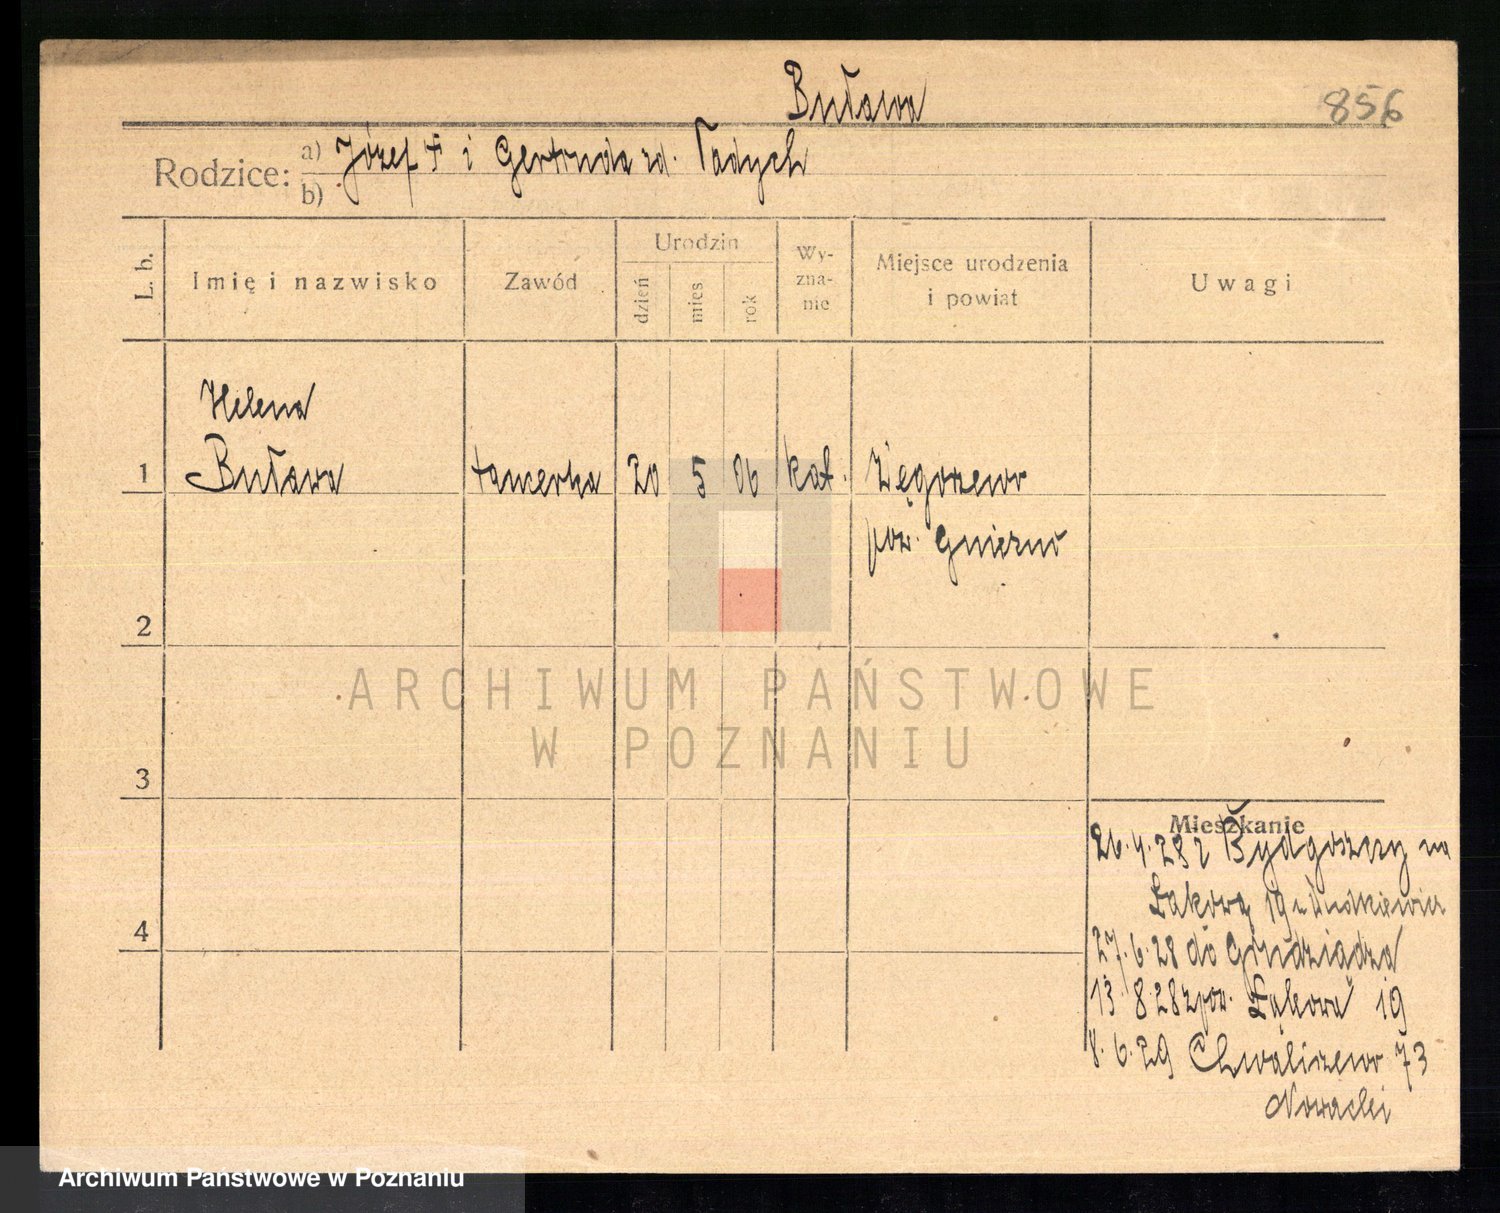 Buława
856
Rodzice: a) Józef † i Gertruda zd. Tadych
b)
L. b.
Imię i nazwisko
Zawód
Urodzin
dzień
mies
rok
Wy-
zna-
nie
Miejsce urodzenia
i powiat
Uwagi
Helena
1 Buława tancerka 20 5 06 kat. Węgorzewo
pow. Gniezno
2
ARCHIWUM PAŃSTWOWE
W POZNANIU
3
Mieszkanie
26.4.28 z Bydgoszczy na
Łąkową 19
4
27.6.28 do Grudziądza
13.8.28 z pow. Łąkowa 19
8.6.29 Chwaliszewo 73
Nowacki
Archiwum Państwowe w Poznaniu